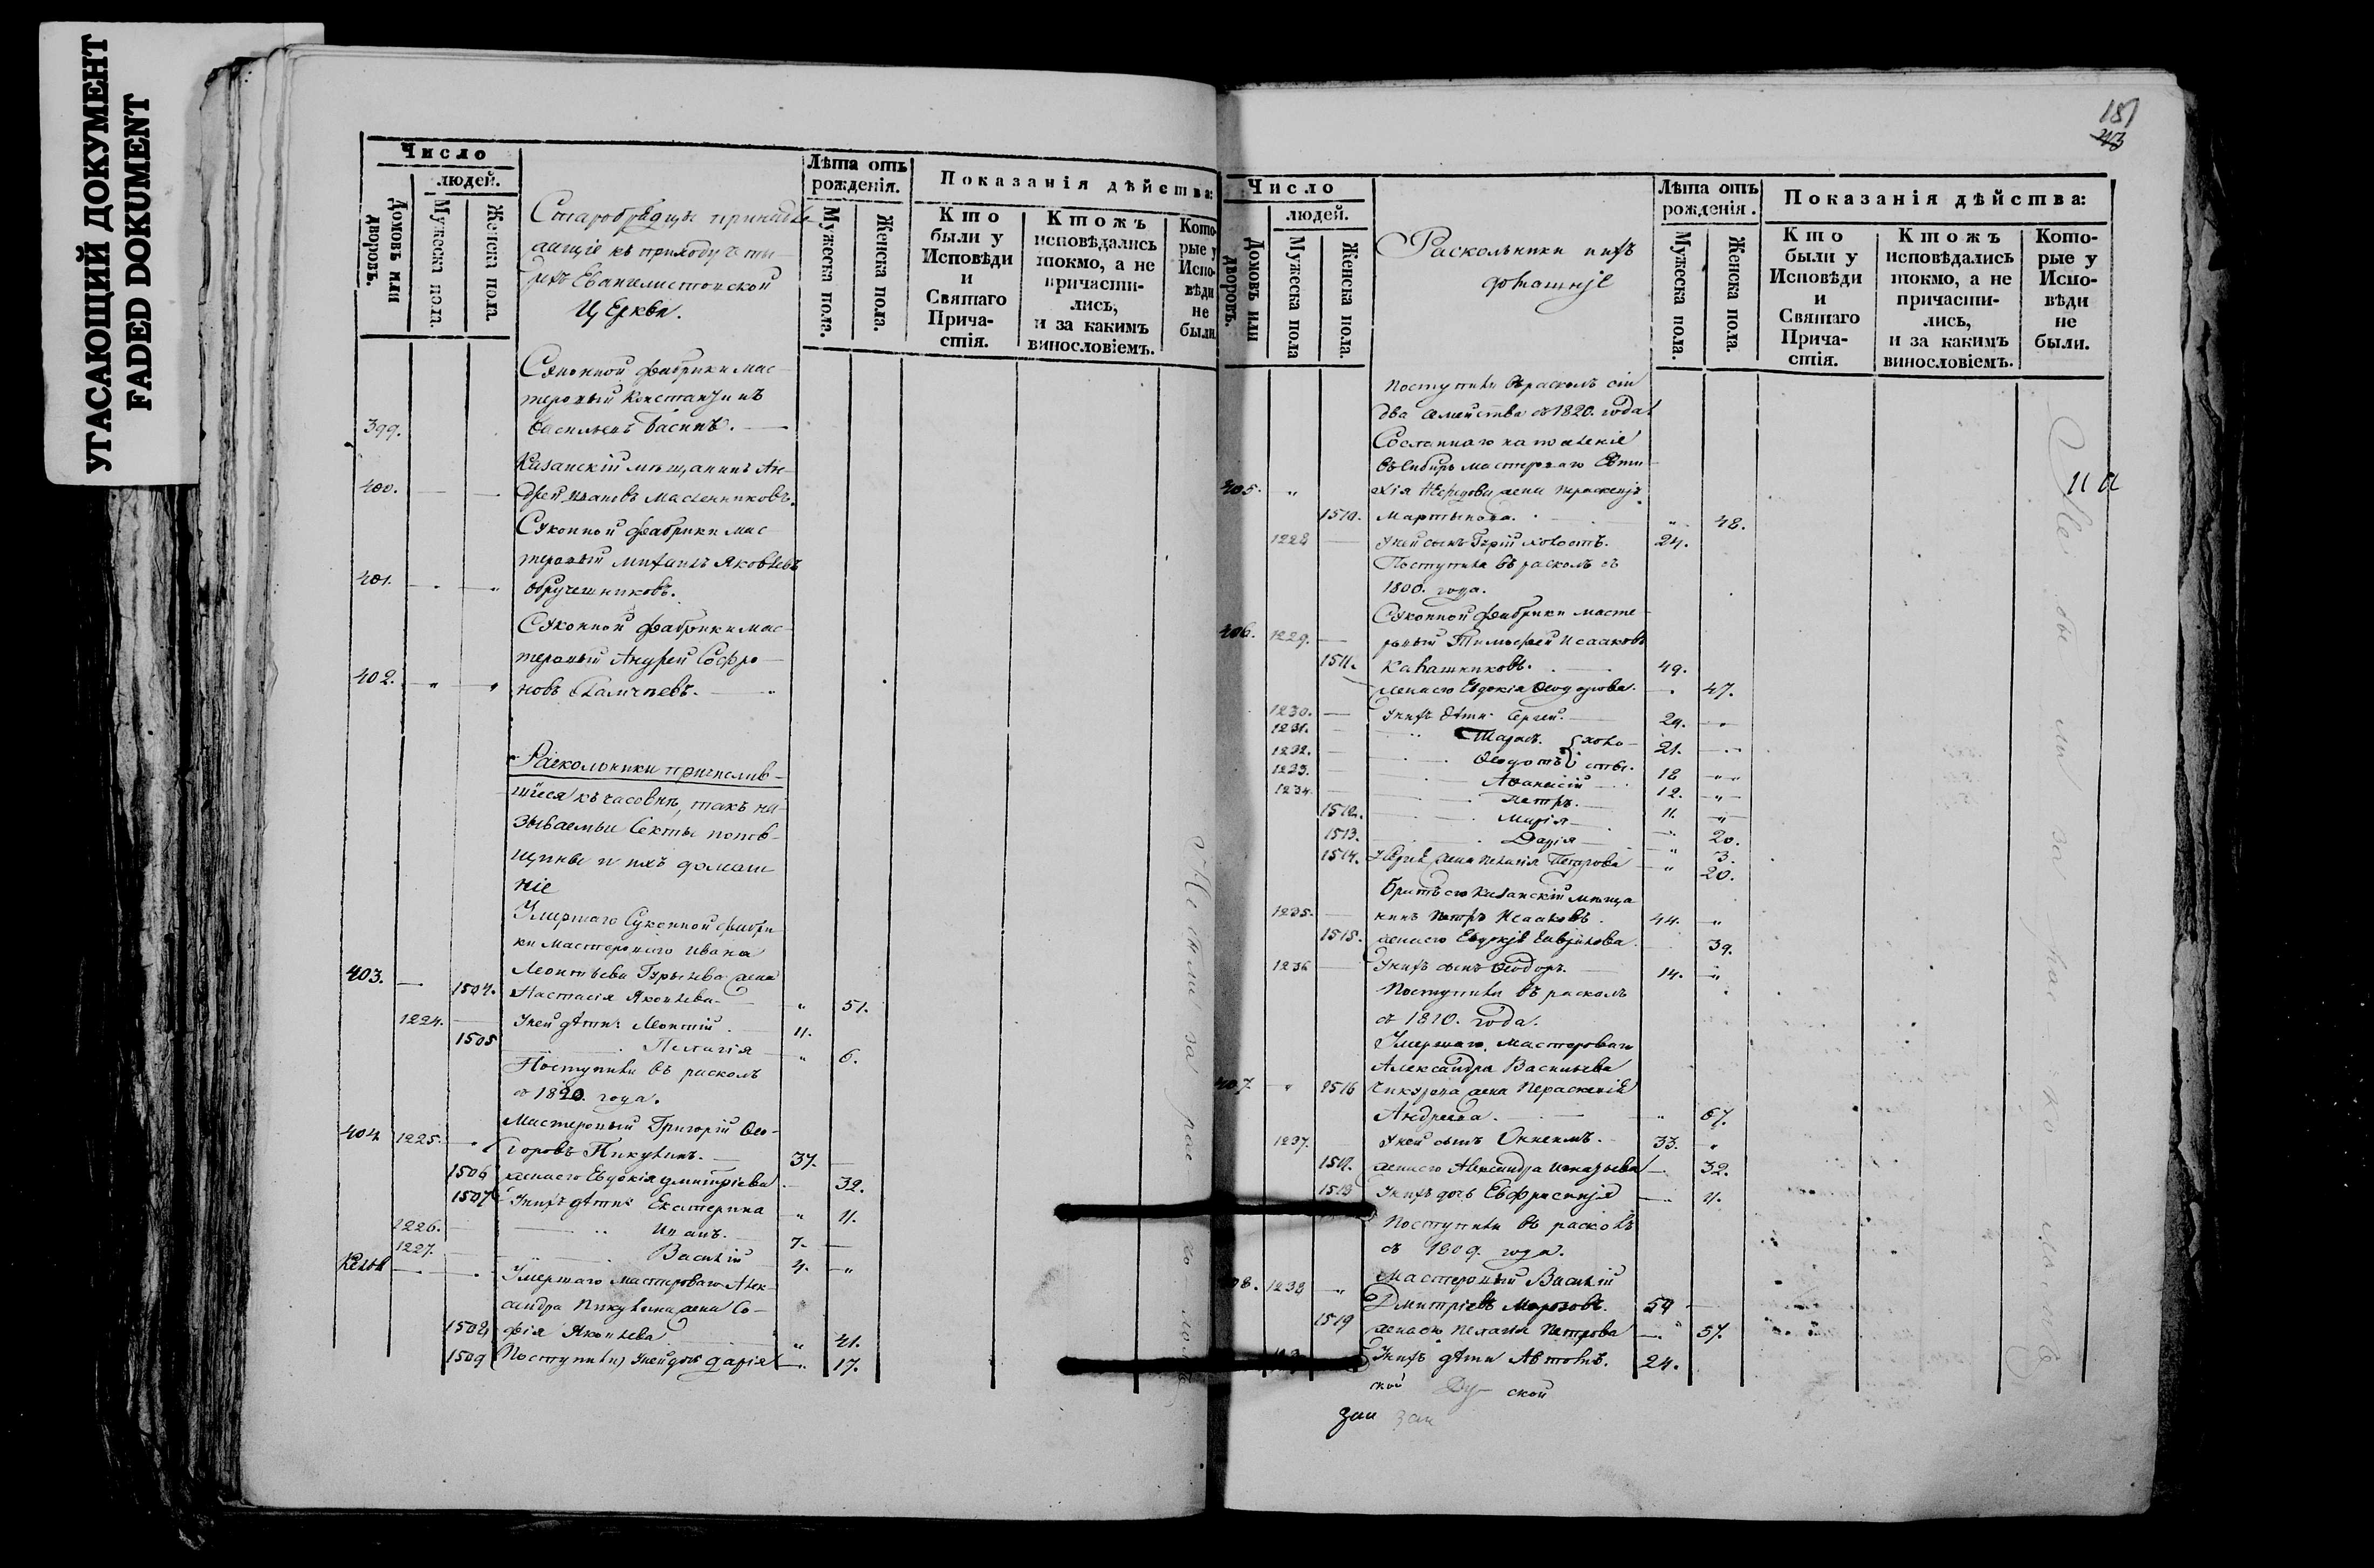 УГАСАЮЩИЙ ДОКУМЕНТ
FADED DOKUMENT
Число
людей.
Домовъ или дворовъ.
Мужеска пола.
Женска пола.
Старобрядцы принадле-
жащіе къ приходу Четы-
рехъ Евангелистовской
Церкви.
Лѣта отъ рожденія.
Мужеска пола.
Женска пола.
Показанія дѣйства:
Кто были у Исповѣди и Святаго Прича-стія.
Ктожъ исповѣдались токмо, а не причасти-лись, и за какимъ винословіемъ.
Кото-рые у Испо-вѣди не были
Суконной фабрики мас-
теровый Константинъ
399. Васильевъ Васинъ.
Казанскій мѣщанинъ Ан-
400. дрей Ивановъ Масленниковъ.
Суконной фабрики мас
теровый Михаилъ Яковлевъ
401. Обручешниковъ.
Суконной фабрики мас-
теровый Андрей Софро-
402. " " новъ
Раскольники причислив-
шіеся къ часовнѣ, такъ на-
зываемыи Секты попов-
щины и ихъ домаш
ніе
Умершаго Суконной фабри
ки Мастероваго Ивана
403. Леонтьева Гурьева жена
1504. Настасія Яковлева " 51.
1224. У ней дѣти: Леонтій 11.
1505 Пелагія " 6.
Поступили въ расколъ
съ 1820. года.
Мастеровый Григорій Ѳео-
404 1225. доровъ Пикулинъ. 37.
1506 жена его Евдокія Дмитріева 32.
1507 У нихъ дѣти: Екатерина " 11.
1226. Иванъ. 7.
1227. Василій 4. "
Умершаго мастероваго Алек-
сандра Пикулина жена Со-
1508 фія Яковлева " 41.
1509 Поступили) У ней дочь Дарія 17.
Не были за раско
181
Число
людей.
Домовъ или дворовъ.
Мужеска пола
Женска пола.
Раскольники и ихъ
домашніе
Лѣта отъ рожденія.
Мужеска пола.
Женска пола.
Показанія дѣйства:
Кто были у Исповѣди и Святаго Прича-стія.
Ктожъ исповѣдались токмо, а не причасти-лись, и за какимъ винословіемъ.
Кото-рые у Испо-вѣди не были.
поступили въ расколъ сіи
два семейства съ 1820. года
Сосланнаго на поселеніе
въ Сибирь мастероваго
405. " жена Параскевія
1510. Мартынова. " 48.
1228 У ней сынъ Гурій холостъ. 24.
Поступила въ расколъ съ
1800. года.
Суконной фабрики масте-
406. 1229. ровый Тимофей Исааковъ
1511. Калашниковъ. 49.
жена его Евдокія Ѳеодорова. 47.
1230. У нихъ дѣти: Сергей. 29.
1231. Тарасъ. } холо- 21.
1232. Ѳеодотъ } сты. 18
1233. Аѳанасій 12.
1234. Петръ. 11.
1512. Марія 20.
1513. Дарія " 3.
1514. жена Пелагія Петрова " 20.
Братъ его Казанскій мѣща
1235. нинъ Петръ Исааковъ. 44. "
1515. жена его Евдокія Гаврилова 39.
1236 У нихъ сынъ Ѳеодоръ. 14. "
Поступили въ расколъ
съ 1810. года.
Умершаго Мастероваго
Александра Васильева
407. " 1516 жена Параскевія
Андреева. " 67.
1237. У ней сынъ 33. "
1517. жена его Александра Игнатьева 32.
1518 У нихъ дочь Евфросинія 4.
Поступили въ расколъ
съ 1809. года.
Мастеровый Василій
08. 1238 " Дмитріевъ Морозовъ. 59
1519 жена его Пелагія Петрова 57.
У нихъ дѣти 24.
Не бы ли за рас ко ломъ
ской ской